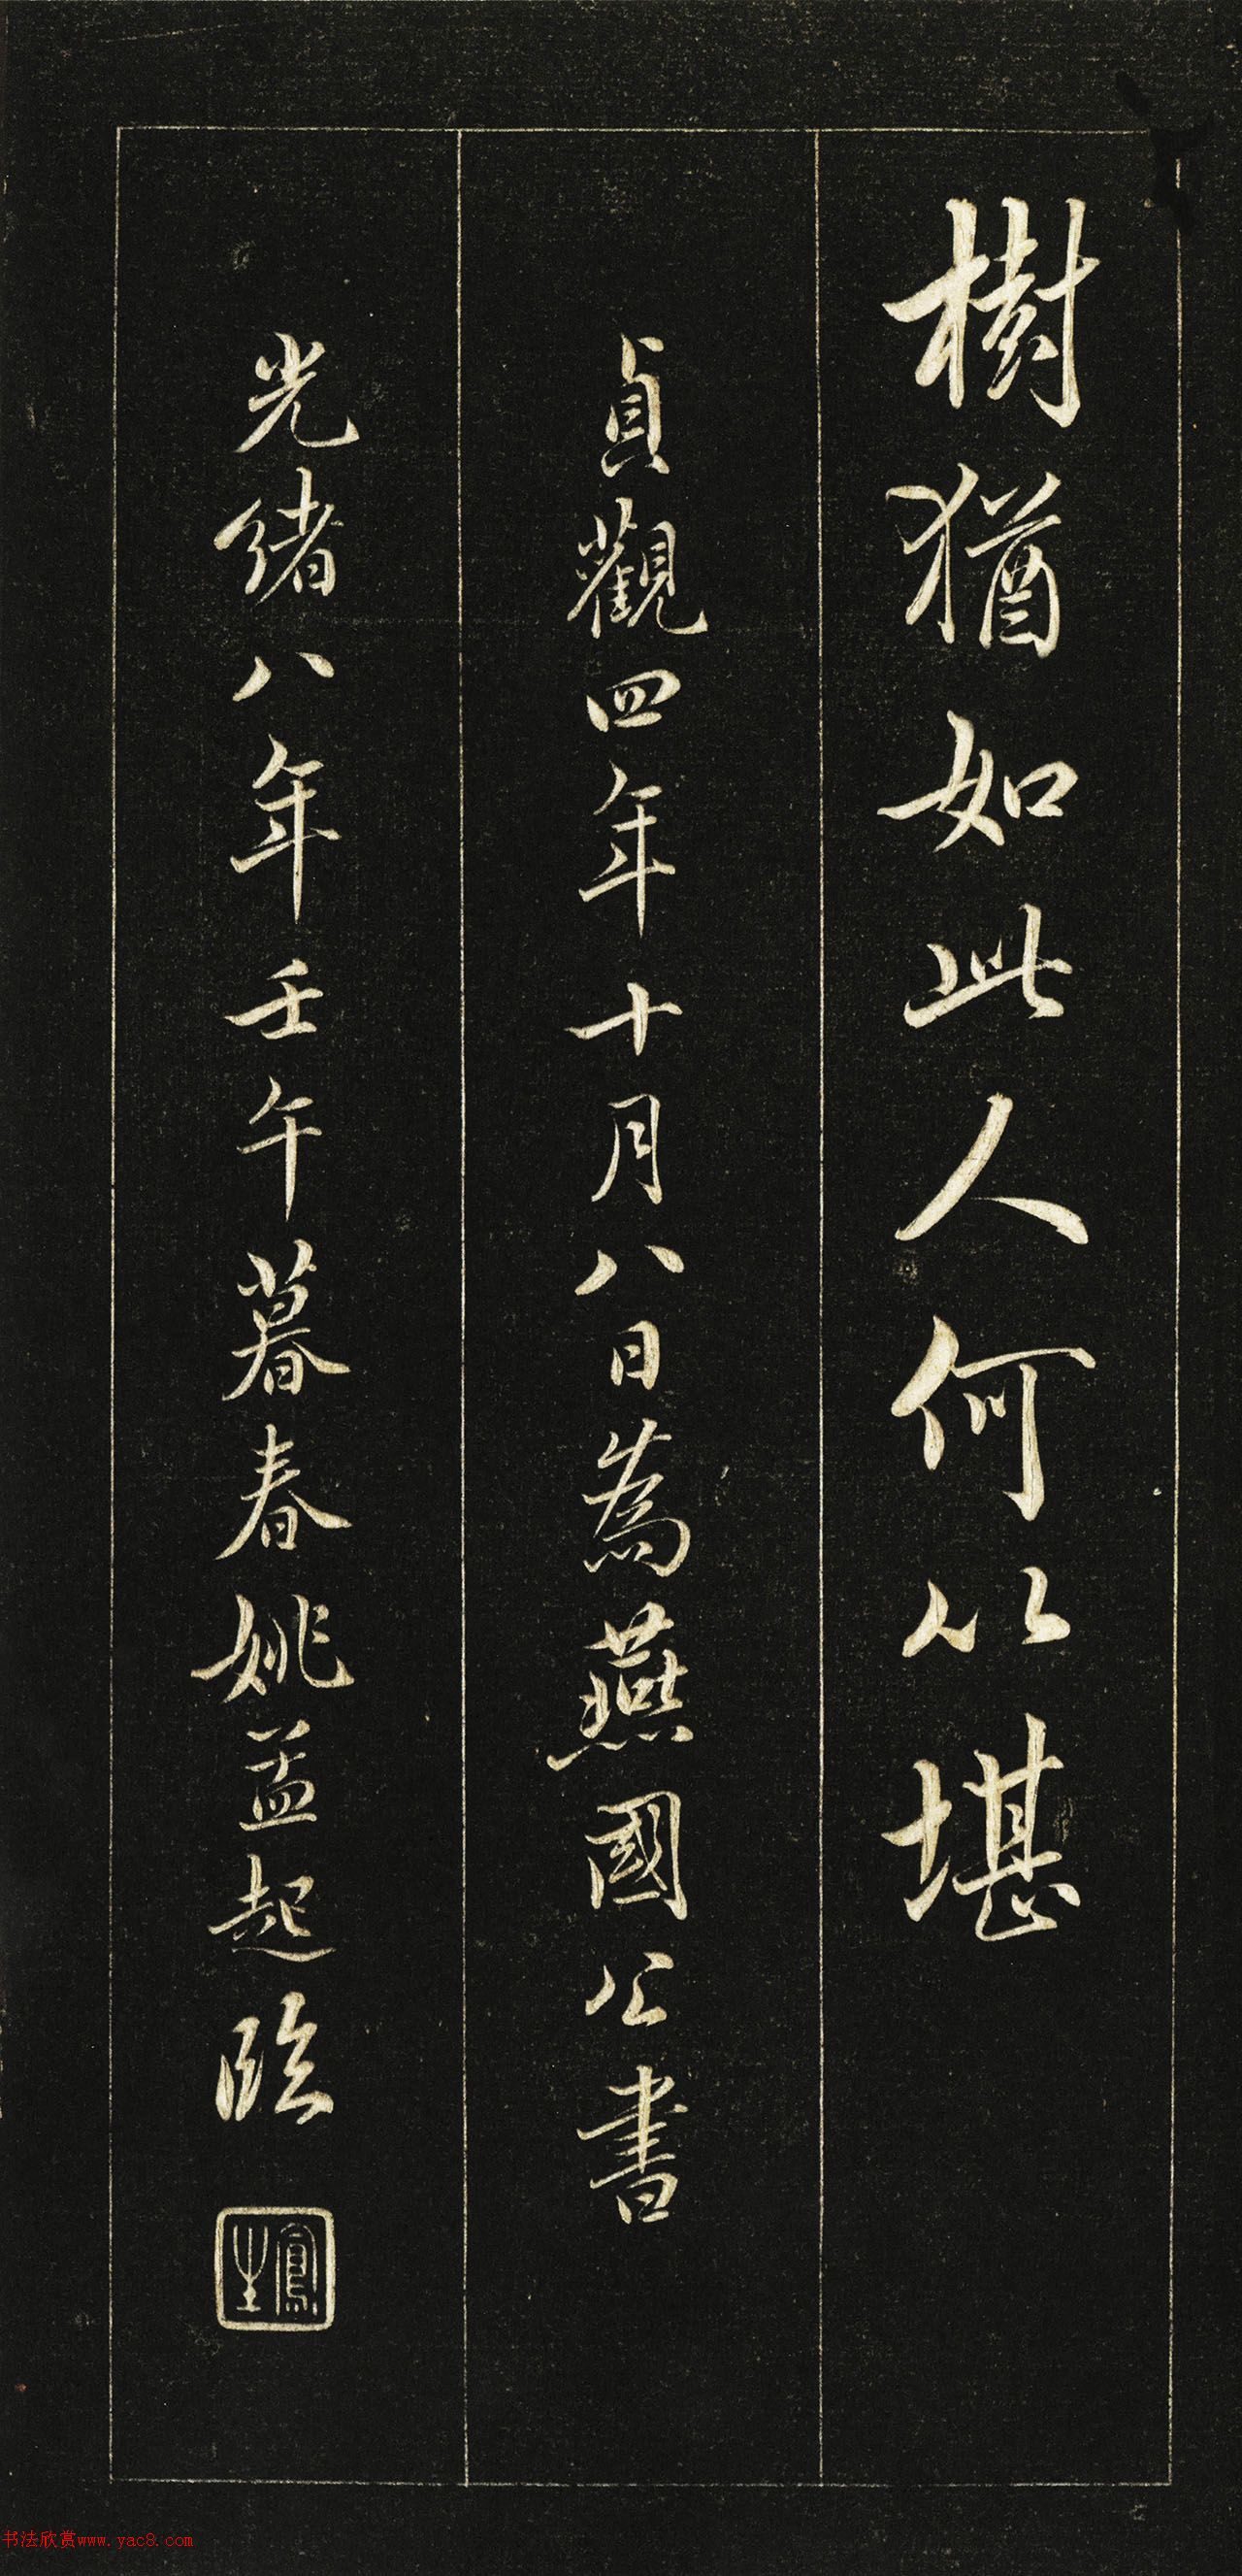 樹猶如此人何以堪
貞觀四年十月八日為燕國公書
光緒八年壬午暮春姚孟起臨
鳳生
书法欣赏www.yac8.com